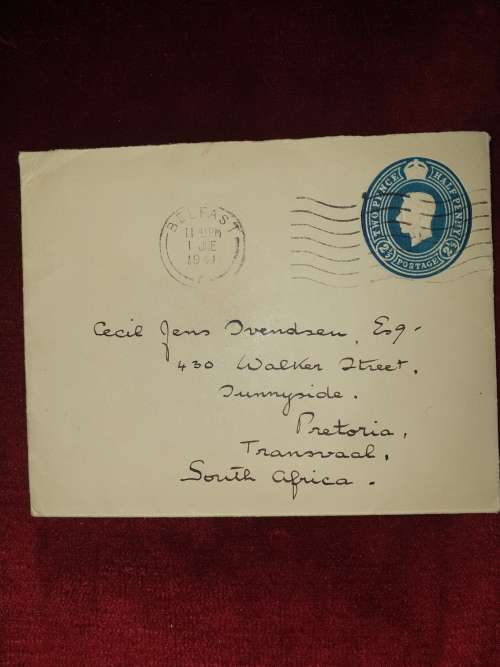 BELFAST
TWO PENCE HALFPENNY
2½ POSTAGE 2½
Cecil Jens Svendsen, Esq-
430 Walker Street,
Sunnyside.
Pretoria,
Transvaal,
South Africa.